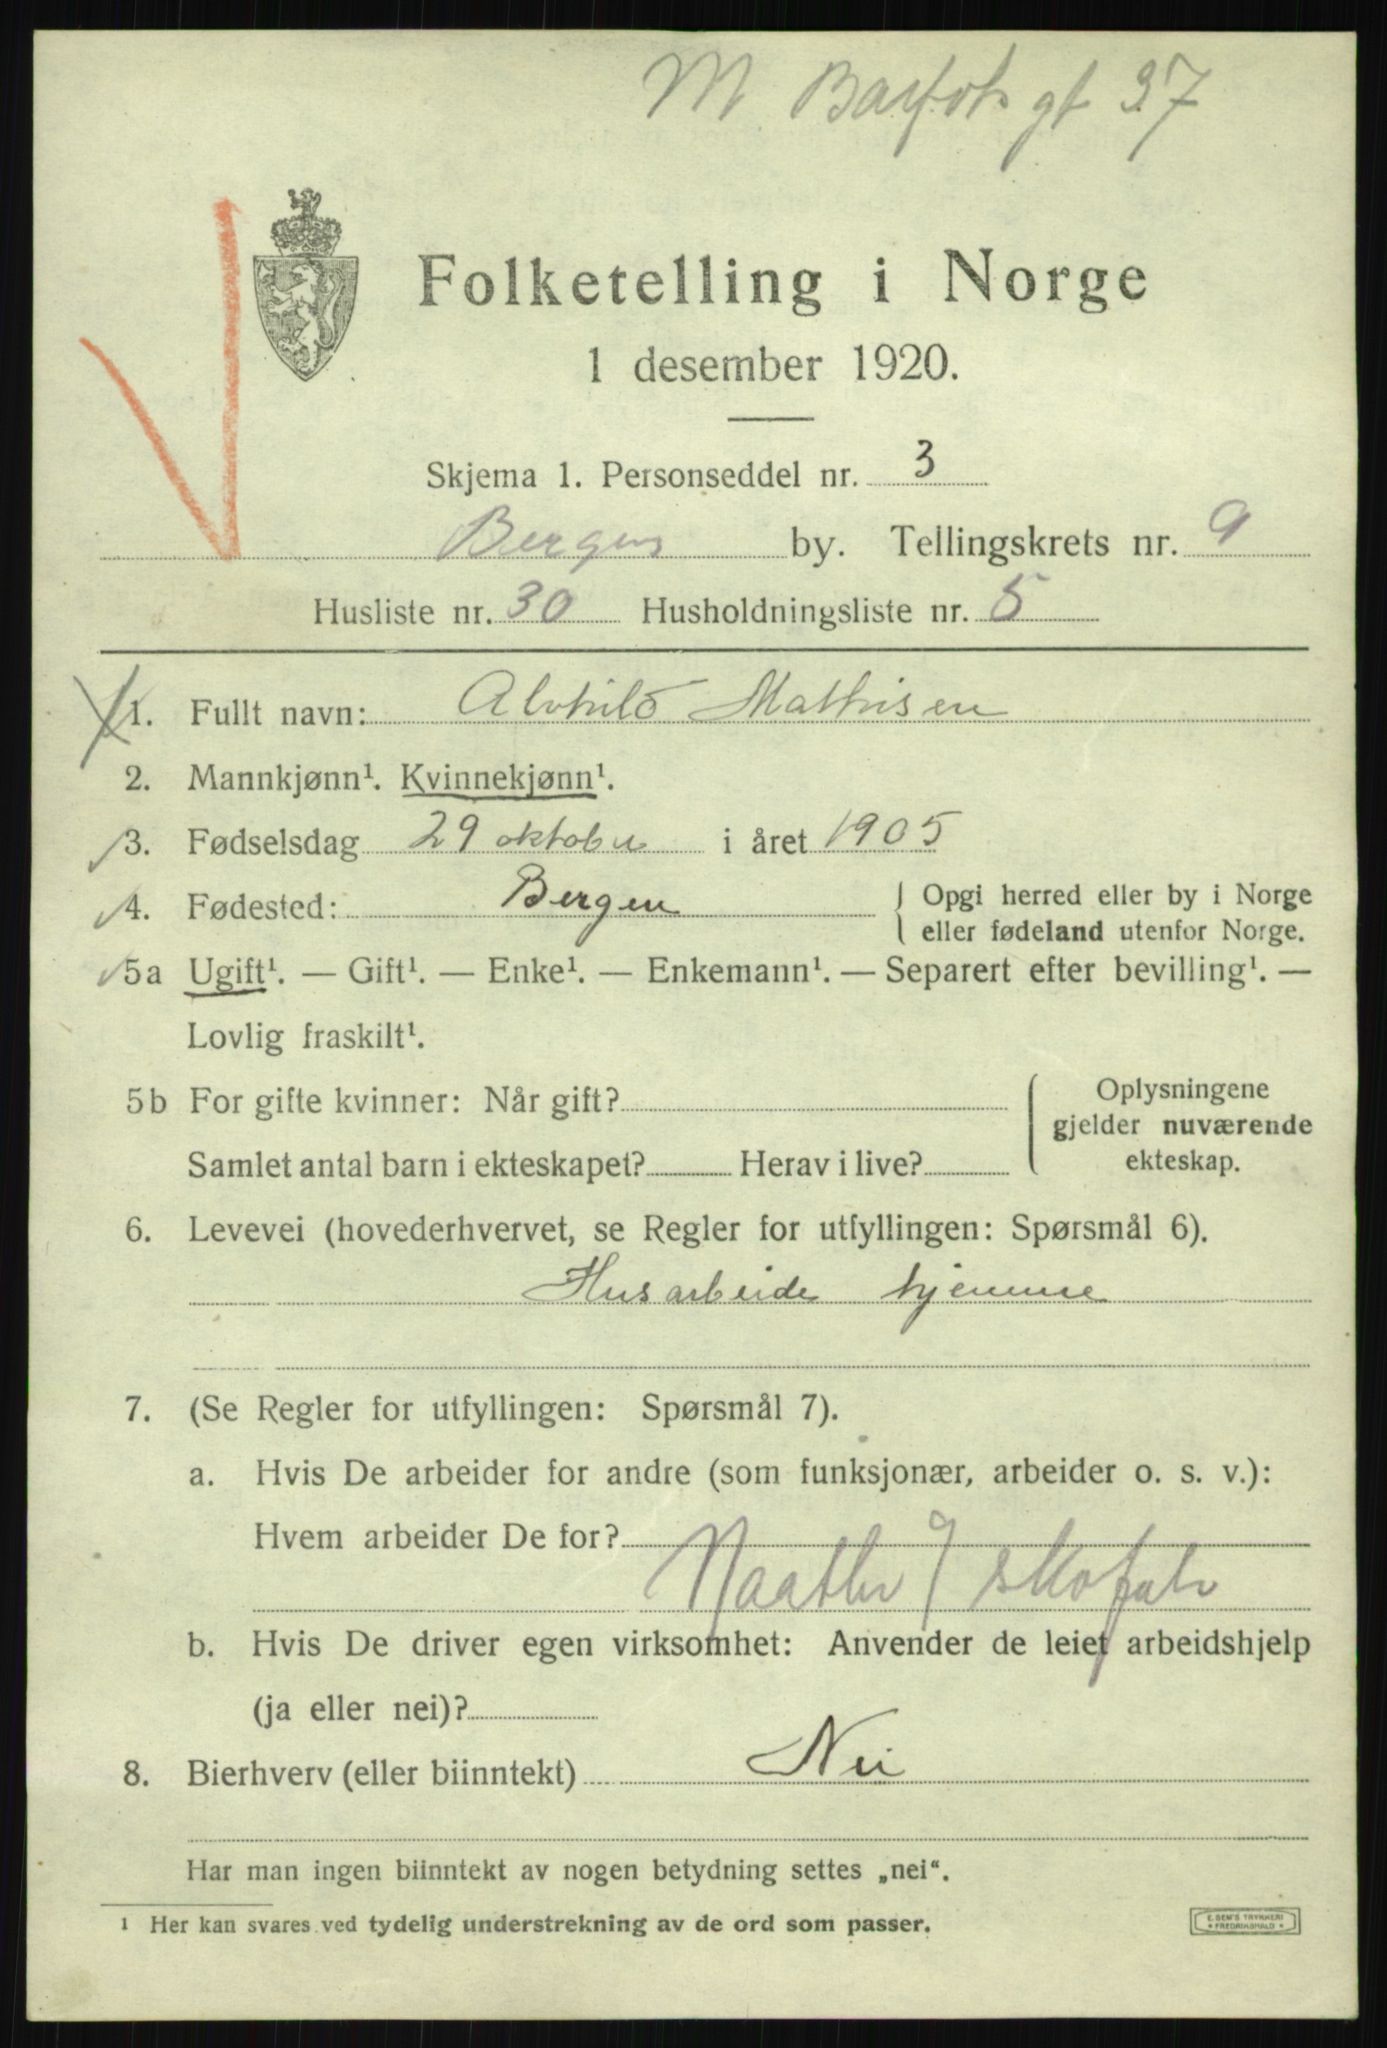 M Barfots gt 37
Folketelling i Norge
1 desember 1920.
Skjema 1. Personseddel nr. 3
Bergens by. Tellingskrets nr. 9
Husliste nr. 30 Husholdningsliste nr. 5
1. Fullt navn: Alvhild Mathisen
2. Mannkjønn¹. Kvinnekjønn¹.
3. Fødselsdag 29 oktober i året 1905
4. Fødested: Bergen { Opgi herred eller by i Norge
eller fødeland utenfor Norge.
5a Ugift¹. — Gift¹. — Enke¹. — Enkemann¹. — Separert efter bevilling¹. —
Lovlig fraskilt¹.
5b For gifte kvinner: Når gift?
Samlet antal barn i ekteskapet? Herav i live?
{ Oplysningene
gjelder nuværende
ekteskap.
6. Levevei (hovederhvervet, se Regler for utfyllingen: Spørsmål 6).
Husarbeide hjemme
7. (Se Regler for utfyllingen: Spørsmål 7).
a. Hvis De arbeider for andre (som funksjonær, arbeider o. s. v.):
Hvem arbeider De for?
skofabr
b. Hvis De driver egen virksomhet: Anvender de leiet arbeidshjelp
(ja eller nei)?
8. Bierhverv (eller biinntekt) Nei
Har man ingen biinntekt av nogen betydning settes „nei“.
1 Her kan svares ved tydelig understrekning av de ord som passer.
E. SEM'S TRYKKERI
* FREDRIKSHALD *